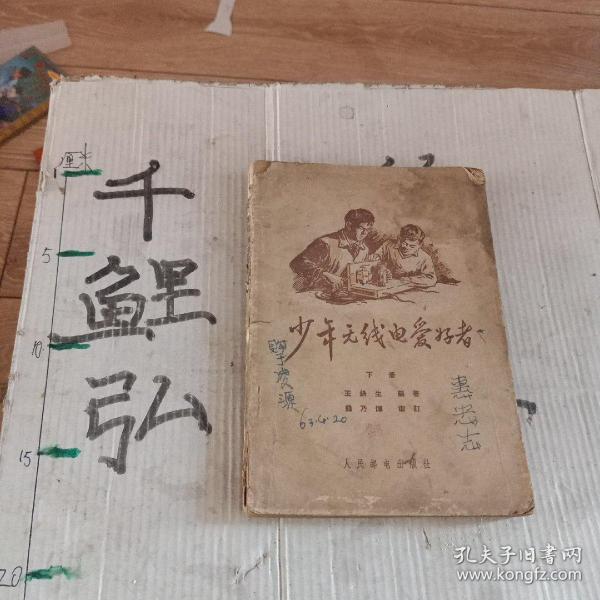 厘米
1
5
10
15
20
千
鲤
弘
少年无线电爱好者
下册
王 生 編著
魏乃 审訂
63.4.20
惠忠志
人民邮电出版社
孔夫子旧书网
www.kongfz.com